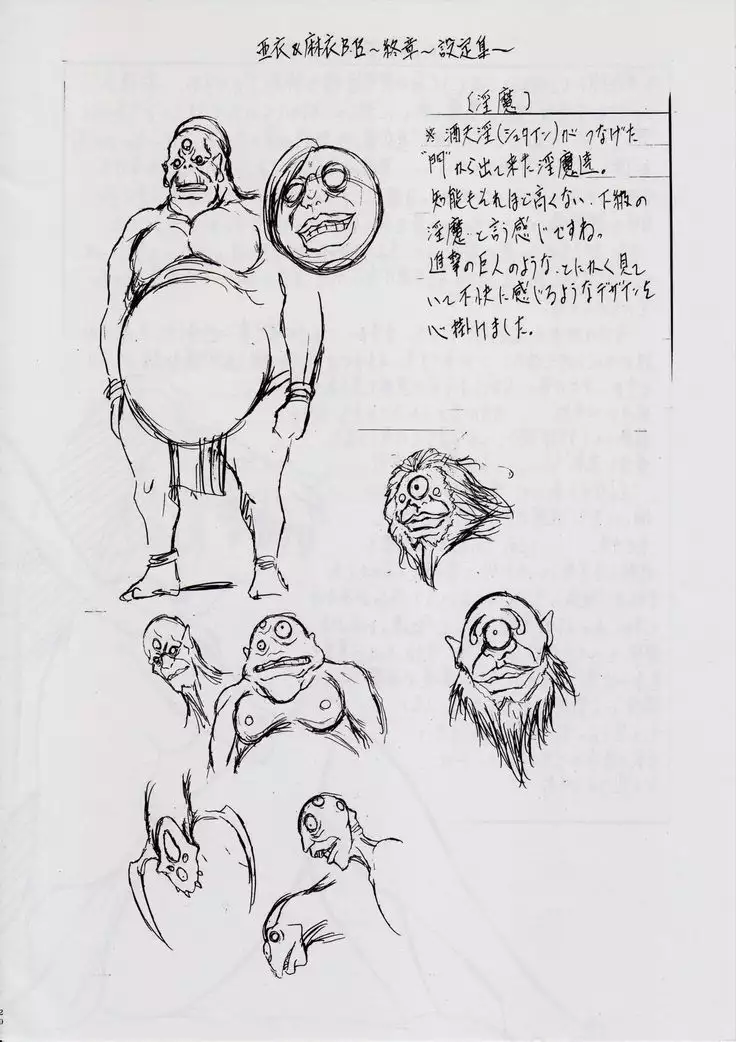 亜衣&麻衣B.B～終章～設定集～
〔淫魔〕
※酒天淫(シュタイン)がつなげた
"門"から出て来た淫魔達。
知能もそれほど高くない、下級の
淫魔…と言う感じですね。
進撃の巨人のような、とにかく見て
いて不快に感じるようなデザインを
心掛けました。
29